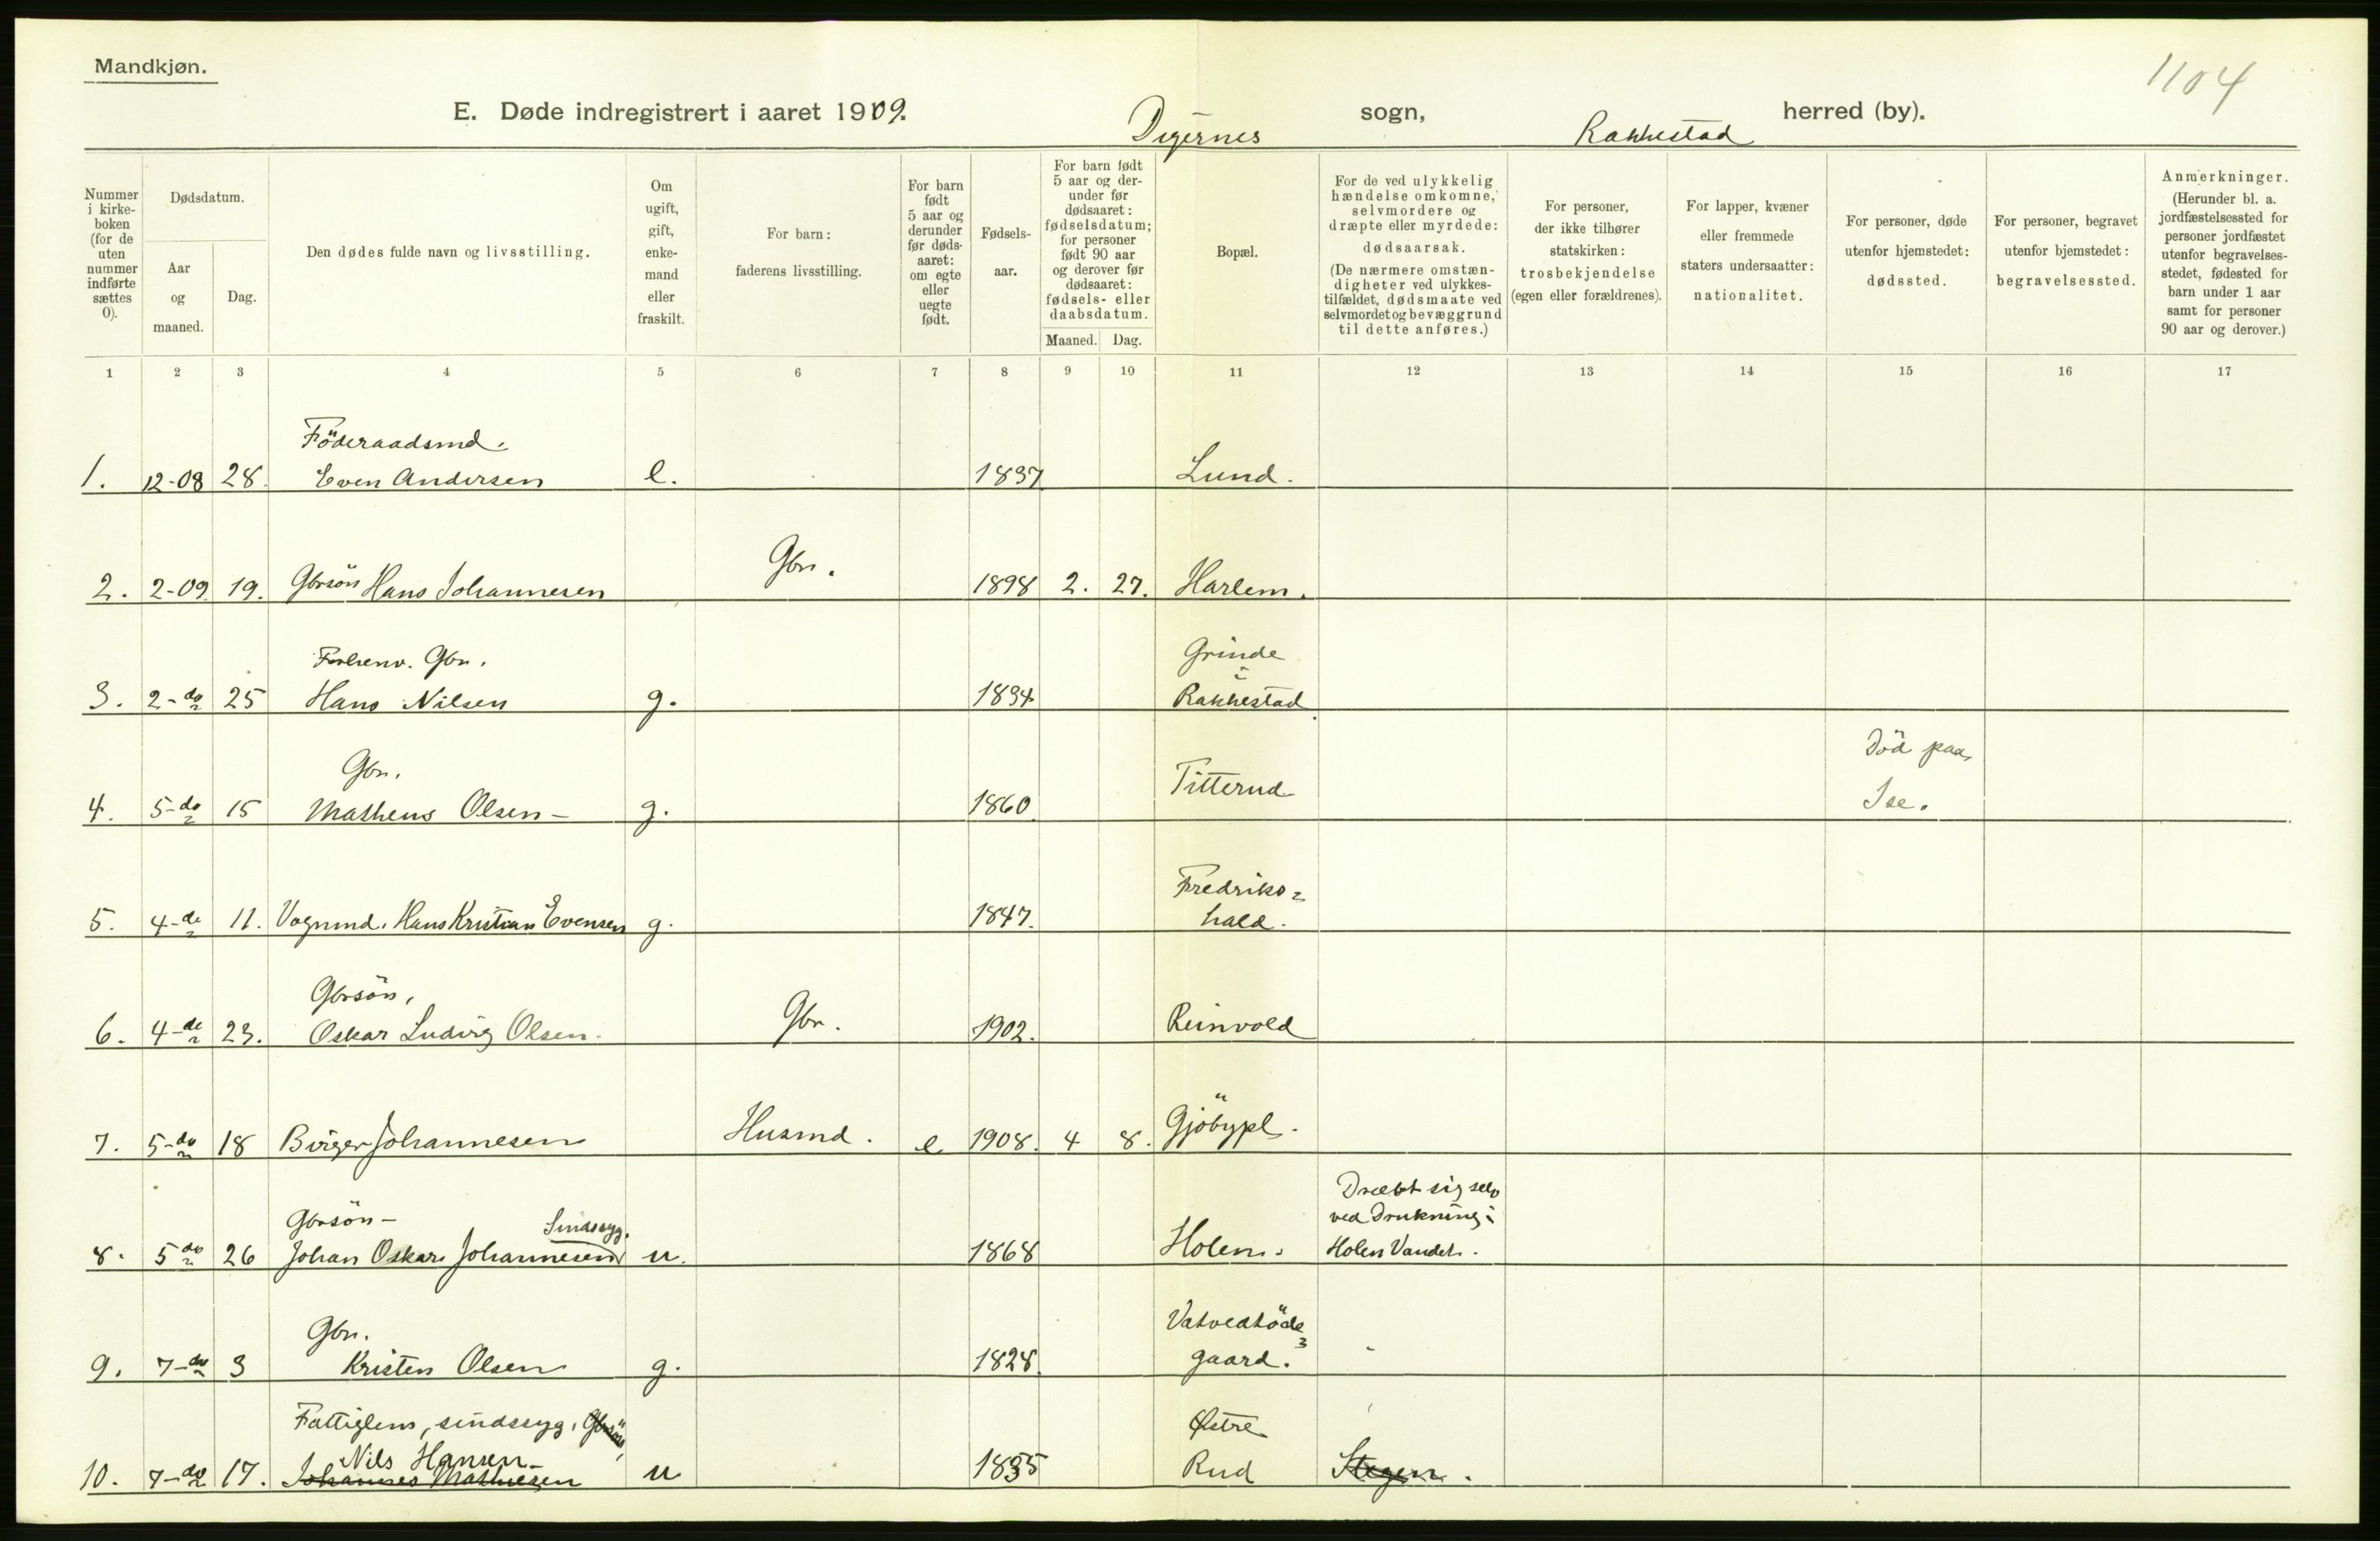 Mandkjøn.
1104
E. Døde indregistrert i aaret 1909. Degernes sogn, Rakkestad herred (by).
Nummer i kirke-boken (for de uten nummer indførte sættes 0).
Dødsdatum.
Aar og maaned.
Dag.
Den dødes fulde navn og livsstilling.
Om ugift, gift, enke-mand eller fraskilt.
For barn: faderens livsstilling.
For barn født 5 aar og derunder før døds-aaret: om egte eller uegte født.
Fødsels-aar.
For barn født 5 aar og der-under før dødsaaret: fødselsdatum; for personer født 90 aar og derover før dødsaaret: fødsels- eller daabsdatum.
Maaned. Dag.
Bopæl.
For de ved ulykkelig hændelse omkomne, selvmordere og dræpte eller myrdede: dødsaarsak. (De nærmere omstæn-digheter ved ulykkes-tilfældet, dødsmaate ved selvmordet og bevæggrund til dette anføres.)
For personer, der ikke tilhører statskirken: trosbekjendelse (egen eller forældrenes).
For lapper, kvæner eller fremmede staters undersaatter: nationalitet.
For personer, døde utenfor hjemstedet: dødssted.
For personer, begravet utenfor hjemstedet: begravelsessted.
Anmerkninger. (Herunder bl. a. jordfæstelsessted for personer jordfæstet utenfor begravelses-stedet, fødested for barn under 1 aar samt for personer 90 aar og derover.)
1 2 3 4 5 6 7 8 9 10 11 12 13 14 15 16 17
Föderaadsmd.
1. 12-08 28. Even Andersen e. 1837 Lund.
Gbr.
2. 2-09 19. Gbrsön Hans Johannesen 1898 2. 27. Harlem.
Forhenv. Gbr. Grinde i
3. 2-do 25 Hans Nilsen g. 1834 Rakkestad
Gbr. Titterud Död paa
4. 5-do 15 Matheus Olsen - g. 1860 Ise.
Fredriks=
5. 4-do 11. Vognmd. Hans Kristian Evensen g. 1847. hald.
Gbrsön,
6. 4-do 23. Oskar Ludvig Olsen. Gbr. 1902. Reinvold
7. 5-do 18 Birger Johannesen Husmd. e 1908. 4 8. Gjöbypl.
Gbrsön - Sindssyg. Dræbt sig selv
ved Drukning i
8. 5 do 26 Johan Oskar Johannesen u. 1868 Holen. Holen Vandet.
Gbr. Vatvedtöde=
9. 7-do 3 Kristen Olsen g. 1828. gaard.
Fattiglem, sindssyg, Gbrsön, Østre
Nils Hansen -
10. 7-do 17. Johannes Mathiesen u 1835 Rud Stegen.